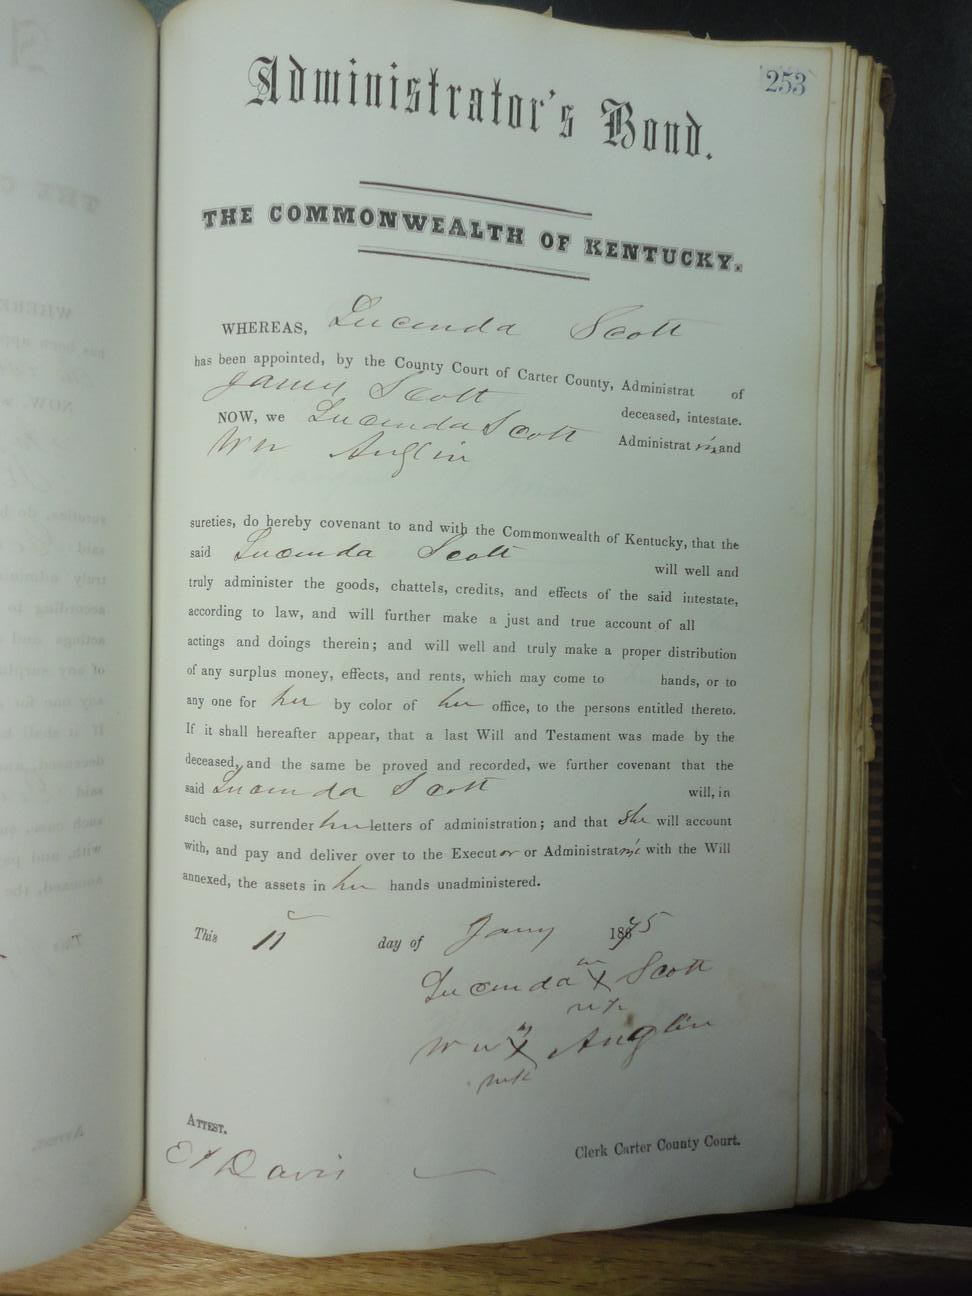 253
Administrator's Bond.
THE COMMONWEALTH OF KENTUCKY.
WHEREAS, Lucinda Scott
has been appointed, by the County Court of Carter County, Administrat of
James Scott deceased, intestate.
NOW, we Lucinda Scott Administratrix and
Wm Anglin
sureties, do hereby covenant to and with the Commonwealth of Kentucky, that the
said Lucinda Scott will well and
truly administer the goods, chattels, credits, and effects of the said intestate,
according to law, and will further make a just and true account of all
actings and doings therein; and will well and truly make a proper distribution
of any surplus money, effects, and rents, which may come to hands, or to
any one for her by color of her office, to the persons entitled thereto.
If it shall hereafter appear, that a last Will and Testament was made by the
deceased, and the same be proved and recorded, we further covenant that the
said Lucinda Scott will, in
such case, surrender her letters of administration; and that she will account
with, and pay and deliver over to the Executor or Administratrix with the Will
annexed, the assets in her hands unadministered.
This 11 day of Jany 1875
Lucinda X Scott
mk
Wm X Anglin
mk
ATTEST.
Davis Clerk Carter County Court.